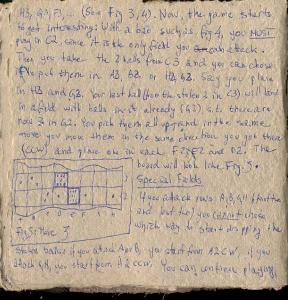 A3, G3, F3, ... (See Fig 3, 4). Now, the game starts
to get interesting. With a bao such as fig 4, you MUST
play in C2, since it is the only field you can attack.
Then you take the 2 balls from C3 and you can choose
to put them in A3, B3, or H3, G3. Say you place
in H3 and G3. Your last ball (from the stolen in C3) will land
in a field with balls in it already (G3), i.e. there are
now 3 in G2. You pick them all up and in the same
move you move them in the same direction you got there
(CCW) and place one in each F2, E2 and D2. The
board will look like Fig. 5.
Special Fields
If you attack rows A, B, G, H (front two
and back two) you cannot chose
which way to start dropping the
Fig 5: Move 3
stolen balls: if you attack A or B, you start from A2 CW, if you
attack G, H, you start from A2 CCW. You can continue playing